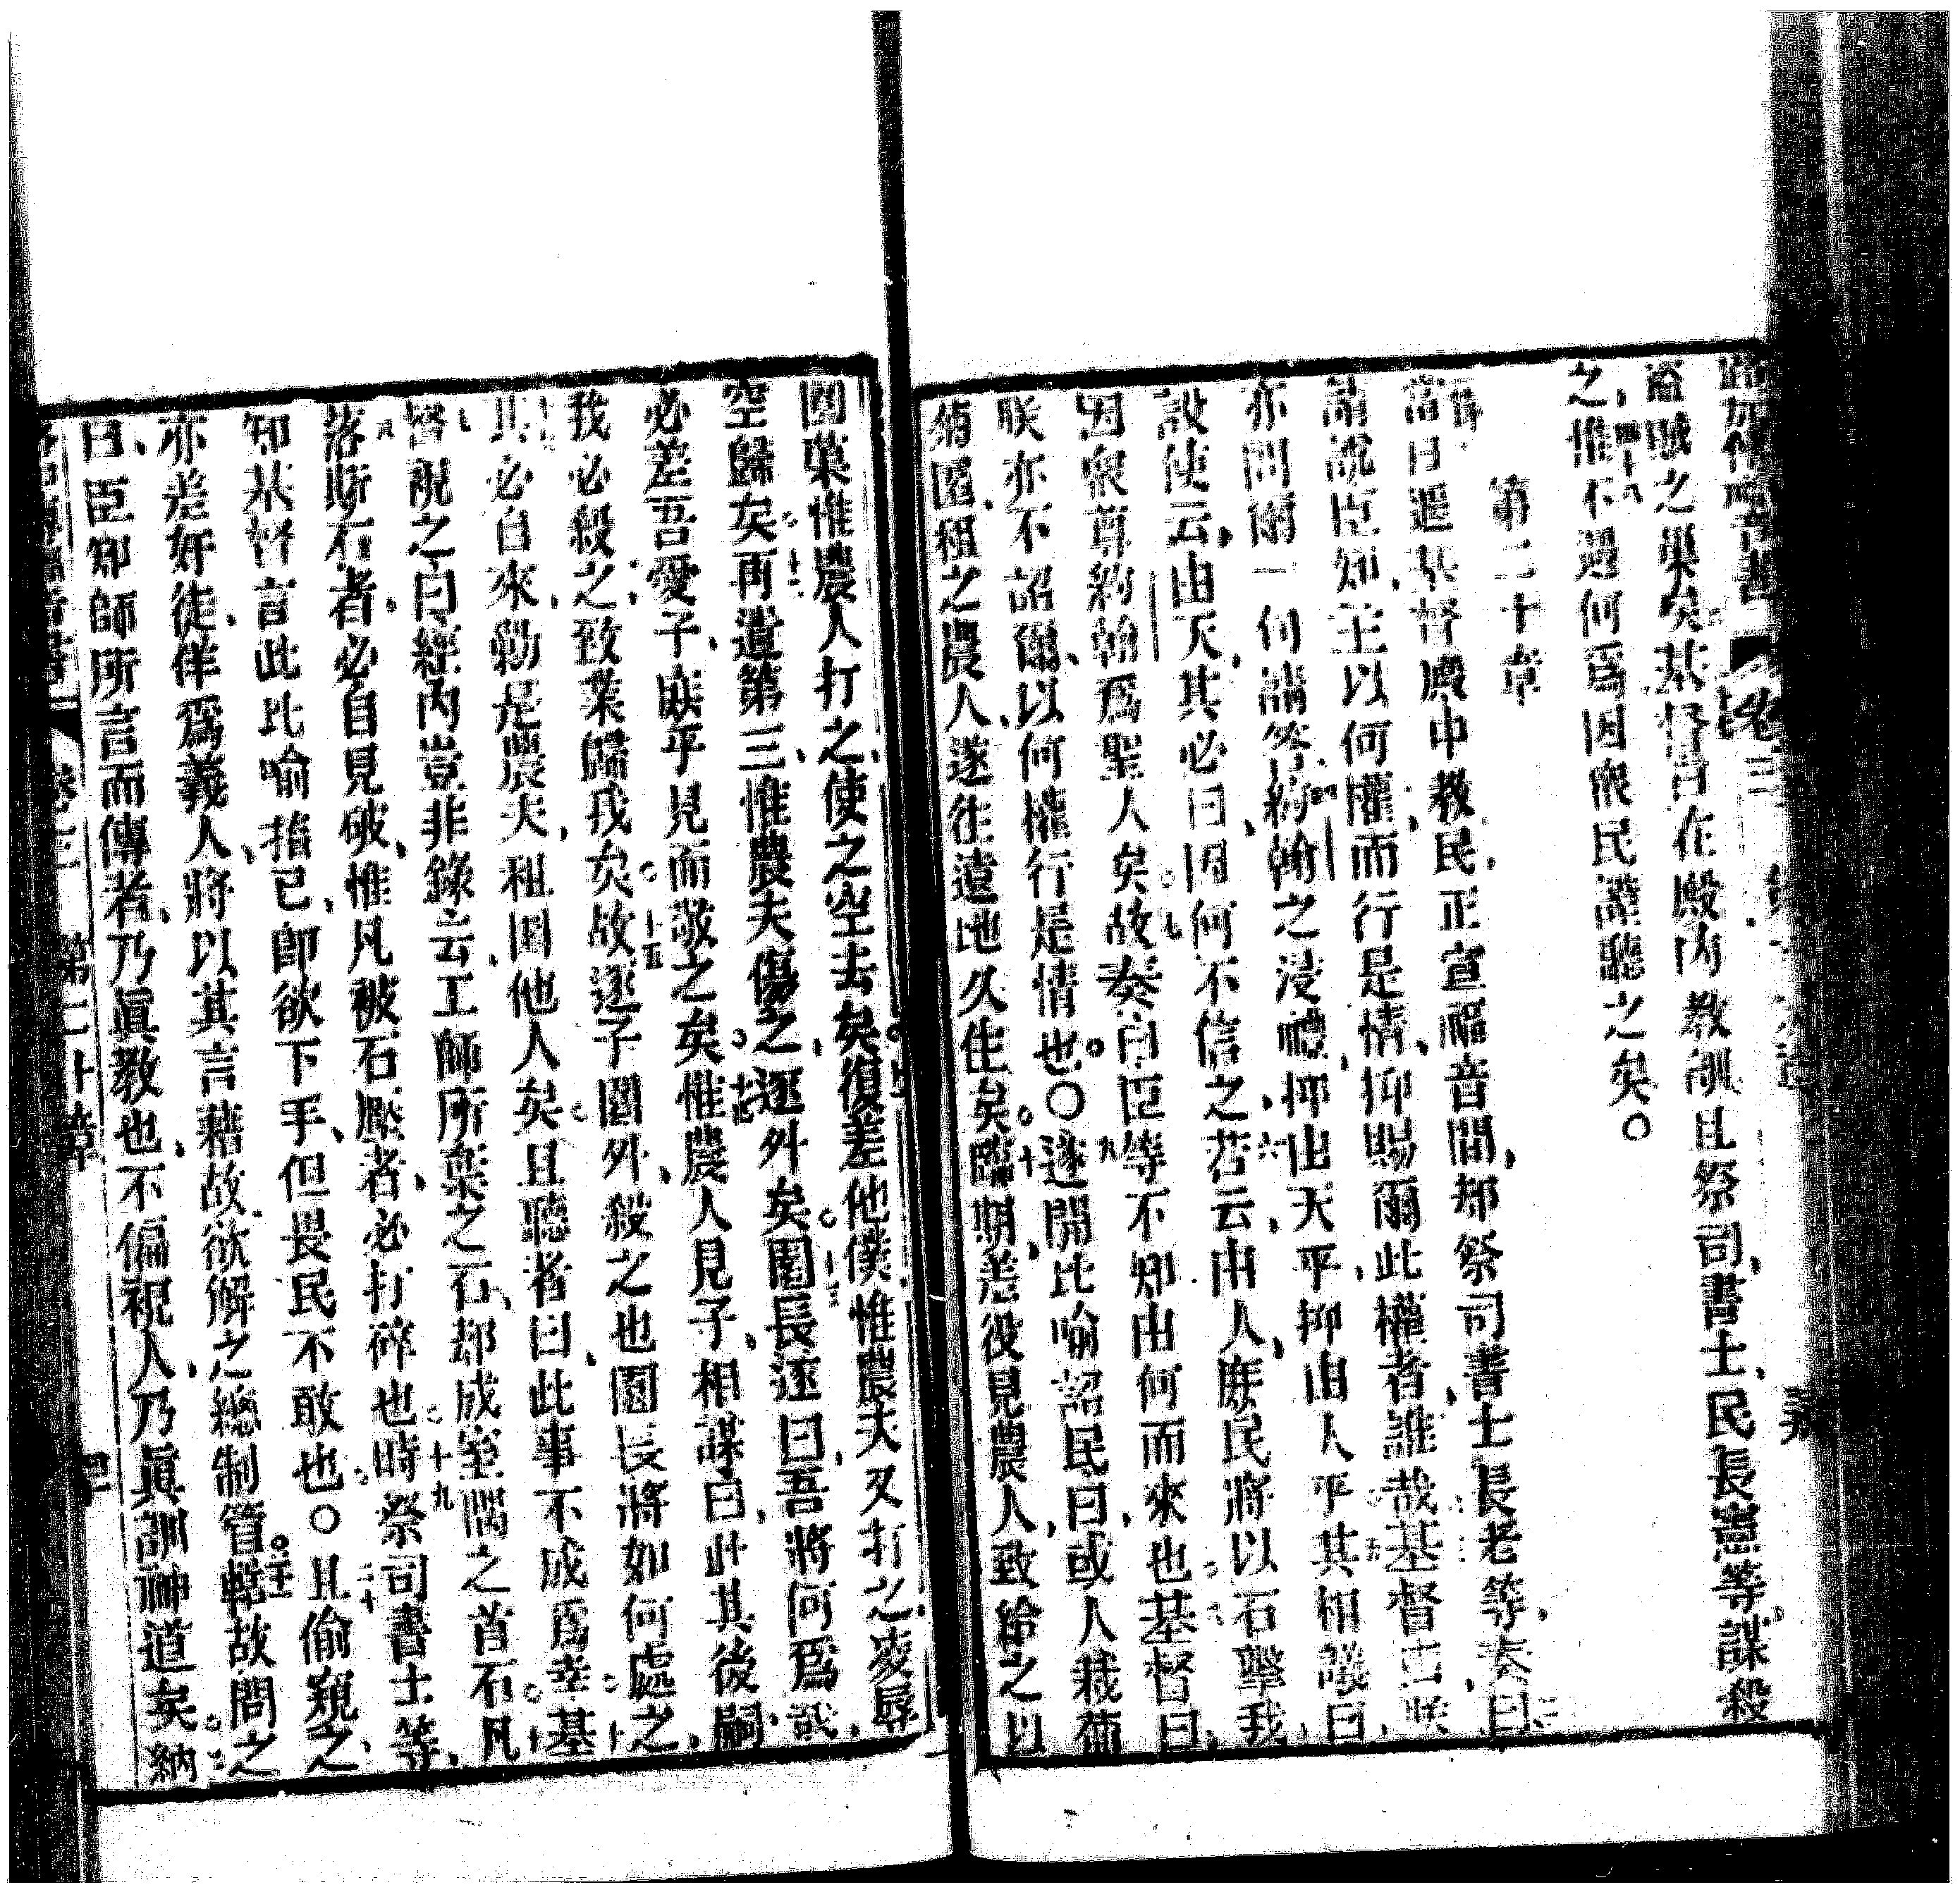 路加傳福音書 卷三
盜賊之巢矣基督言在殿內教訓且祭司書士民長憲等謀殺
之惟不過何爲因衆民讙聽之矣○
第二十章
當日遇基督殿中教民正宣福音間却祭司書士長老等奏曰
請說臣知主以何權而行是情抑賜爾此權者誰哉基督曰朕
亦問爾一句請答約翰之浸禮抑由天乎抑由人乎其相議曰
設使云由天其必曰因何不信之若云由人庶民將以石擊我
因衆尊約翰爲聖人矣故奏曰臣等不知由何而來也基督曰
朕亦不詔爾以何權行是情也○遂開比喻詔民曰或人栽葡
萄園租之農人遂往遠地久住矣臨期差役見農人致給之以
園菓惟農人打之使之空去矣復差他僕惟農夫又打之凌辱
空歸矣再遣第三惟農夫傷之逐外矣園長遂曰吾將何爲哉
必差吾愛子庶乎見而敬之矣惟農人見子相謀曰此其後嗣
我必殺之致業歸我矣故逐子園外殺之也園長將如何處之
其必自來勦是農夫租園他人矣且聽者曰此事不成爲幸基
督視之曰經內豈非錄云工師所棄之石却成室隅之首石凡
落斯石者必自見破惟凡被石壓者必打碎也時祭司書士等
知基督言此比喻指己卽欲下手但畏民不敢也○且偷窺之
亦差奸徒佯爲義人將以其言藉故欲解之總制管轄故問之
曰臣知師所言而傳者乃眞教也不偏視人乃眞訓神道矣納
卷三 第二十章